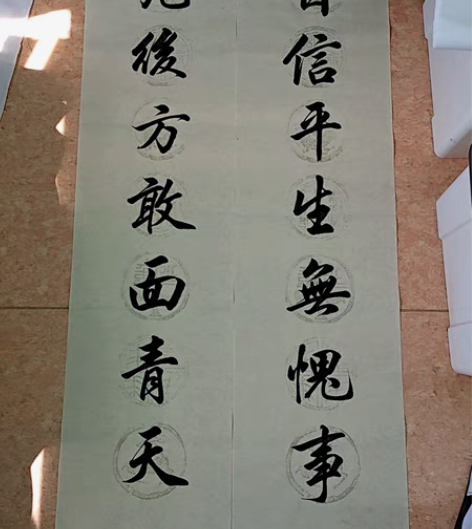 信平生無愧事
後方敢面青天